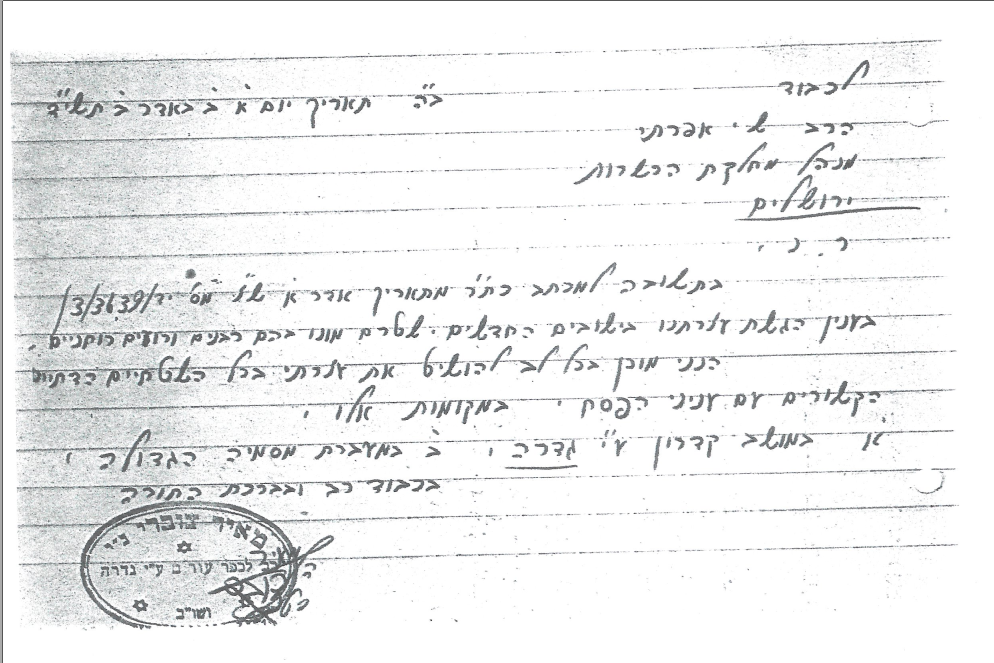 לכבוד
ב"ה תאריך יום א' ב' באדר ב' תשי"ד
הרב ש. י. אפרתי
מנהל מחלקת הכשרות
ירושלים
ר. נ.
בתשובה למכתב כת"ר מתאריך אדר א' ש"ז מס' יד/3/3639
בענין הגשת עזרתנו בישובים החדשים. שטרם מונו בהם רבנים ורועים רוחניים.
הנני מוכן בכל לב להושיט את עזרתי בכל השטחים הדתיים
הקשורים עם עניני הפסח. במקומות אלו,
א) במושב קדרון ע"י גדרה, ב' במעברת מסמיה הגדולה,
בכבוד רב ובברכת התורה
מאיר צוברי נ"י
לכפר עורים ע"י גדרה
ושו"ב